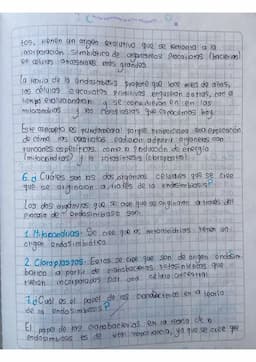 tos, tienen un origen evolutivo que se remonta a la
incorporación simbiótica de organismos procariotas (bacterias)
en células ancestrales más grandes.
la teoría de la endosimbiosis propone que hace miles de años,
las células eucariotas primitivas
tiempo evolucionaron y se convirtieron en las
mitocondrias y los cloroplastos que conocemos hoy.
Este concepto es fundamental porque proporciona una explicación
de cómo los eucariotas pudieron adquirir organelos con
funciones específicas, como la producción de energía
(mitocondrias) y la fotosíntesis (cloroplastos)
6. ¿Cuáles son los dos orgánulos celulares que se cree
que se originaron a través de la endosimbiosis?
Los dos orgánulos que se cree que se originaron a través del
proceso de endosimbiosis son:
1. Mitocondrias: Se cree que las mitocondrias tienen un
origen endosimbiótico
2. Cloroplastos: Estos se cree que son de origen endosim
biótico a partir de cianobacterias fotosintéticas que
fueron incorporadas por una célula ancestral.
7. ¿Cuál es el papel de las cianobacterias en la teoría
de la endosimbiosis?
El papel de las cianobacterias en la teoría de la
endosimbiosis es de gran importancia, ya que se cree que